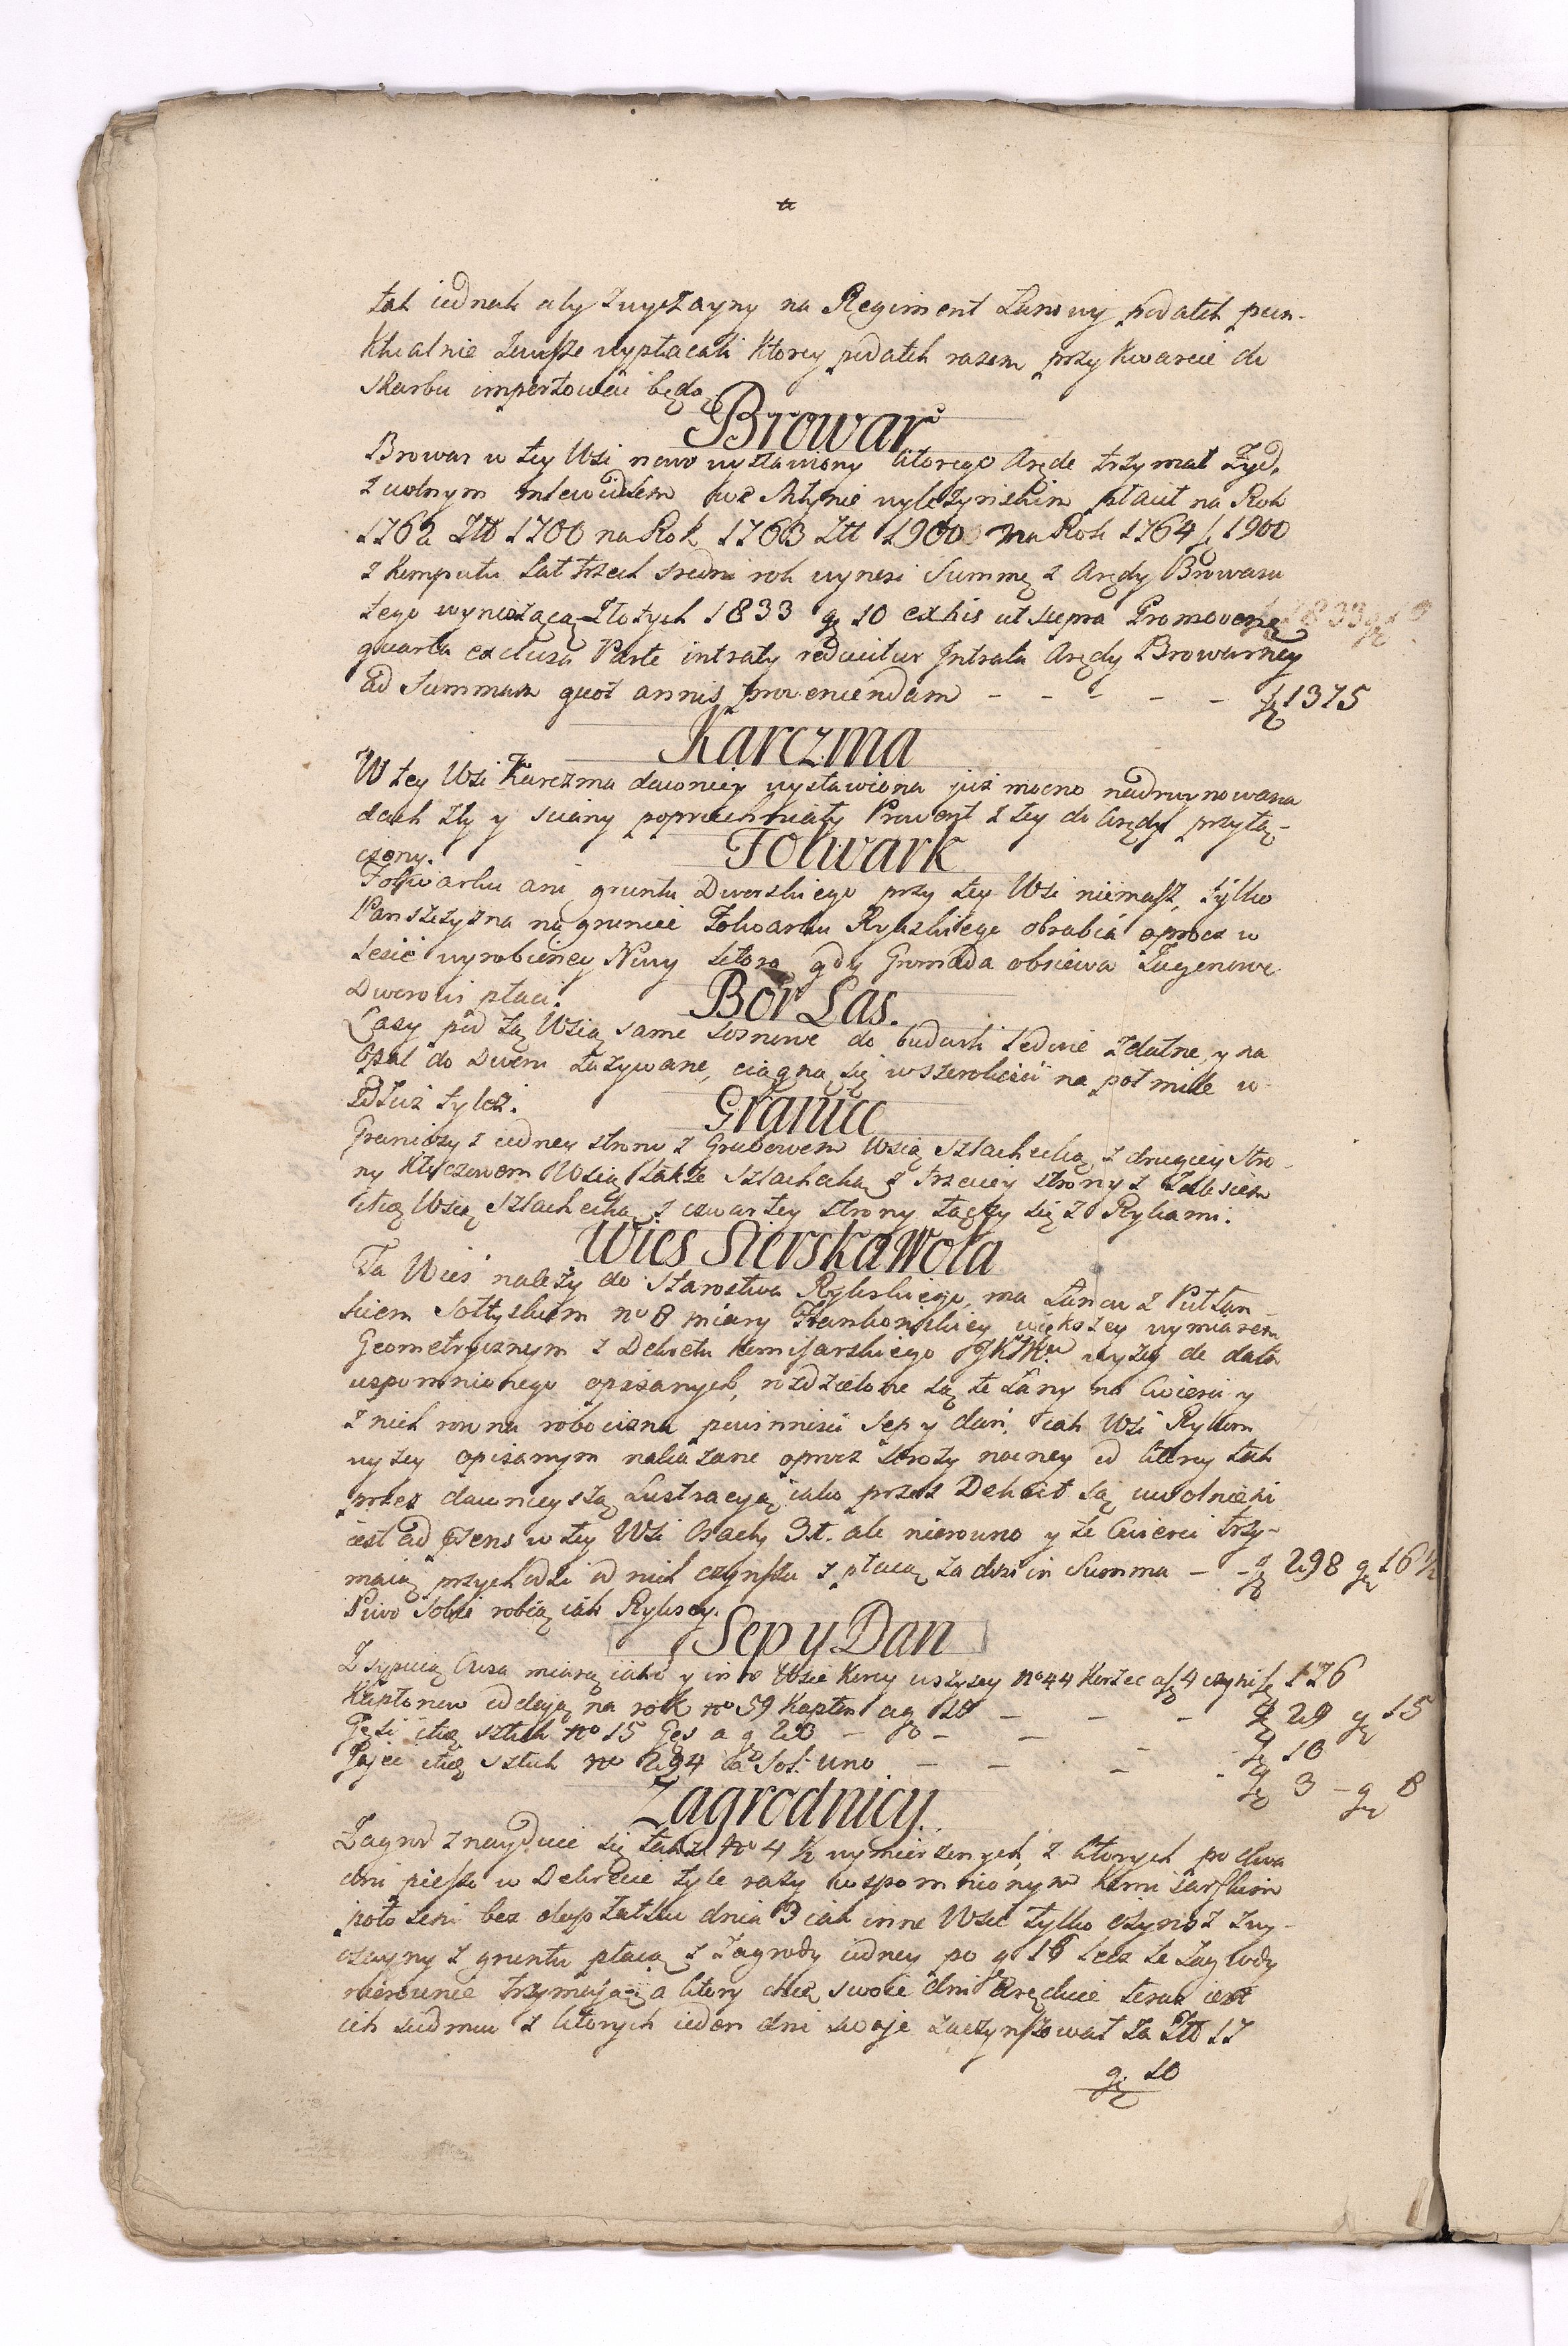 tak iednak aby zwyczayny na Regiment Łanowy podatek pun-
ktualnie zawsze wypłacali ktory podatek razem przy kwarcie do
Skarbu importować będą.
Browar
Browar w tey Wsi nowo wystawiony ktorego Arędę trzymał Żyd,
z wolnym mlewidłem we Młynie wyleżyńskim płacił na Rok
1762 Złł 1700 na Rok 1763 Złł 1900 na Rok 1764 zł 1900
z Komputu Lat trzech sredni rok wynosi Summę z Arędy Browaru
tego wynoszącą Złotych 1833 gr 10 ex his ut supra Promovenę
quarta exclusa Parte intraty reducitur Intrata Arędy Browarney
ad Summam quot annis proveniendam - - - - - zł 1375
zł 1833 gr 10
Karczma
W tey Wsi Karczma dawniey wystawiona już mocno nadruynowana
dach zły y sciany poprochniały Prowent z tey do Arędy przyłą-
czony.
Folwark
Folwarku ani gruntu Dworskiego przy tey Wsi niemasz, tylko
Panszczyzna na gruncie Folwarku Rylskiego obrabia oprocz w
Lesie wyrobioney Niwy ktorą gdy Gromada obsiewa Zagonowe
Dworowi płaci.
Bor Las.
Lasy pod tą Wsią same sosnowe do budowli ledwie zdatne y na
Opał do Dworu zażywane, ciągną się w szerokości na poł mile w
zdłuż tyleż.
Granice
Graniczy z iedney strony z Grabowem Wsią Szlachecką, z drugiey stro-
ny Kłyczewem Wsią także Szlachecką z trzeciey strony z Zalesiem
itą Wsią Szlachecką z czwartey strony łączy się z Rylcami.
Wies Sierska Wola
Ta Wieś należy do Starostwa Rylskiego, ma Łanow z Puł Łan-
kiem Sołtyskim no 8 miary Frankońskiey większey wymiarem
Geometrycznym z Dekretu Komisarskiego JKMci wyżey de data
uspomnionego opisanych, rozdzielone są te Łany na Cwierci y
z nich rowna robocizna powinności Sep y dań, iak Wsi Rylsom
wyżey opisanym nakazane oprocz Stroży nocney od ktorey tak
przez dawnieyszą Lustracyą iako przez Dekret są uwolnieni
iest ad prens w tey Wsi Osady 3t. ale nierowno y te Cwierci trzy-
maią przychodzi od nich czynszu z płacą za dni in Summa - - zł 298 gr 16 ½
Piwo Sobie robią iak Rylscy.
Sep y Dan
Zsypuią Owsa miarą iako y inne Wsie Korcy wszyscy no 44 Korzec a zł 4 czyni zł 176
Kapłonow oddaią na rok no 59 Kapłon a gr 15 - - - zł 29 gr 15
Gęsi itą sztuk no 15 Gęś a gr 20 - - - - zł 10
Jajec itą sztuk no 294 a Sol: uno - - - - zł 3 - gr 8
Zagrodnicy.
Zagrod znayduie się także no 4 ½ wymierzonych, z ktorych po dwa
dni pieszo w Dekrecie tyle razy wspomnionym Komisarskim
położeni bez dopłatku dnia 3 iak inne Wsie tylko czynsz zwy-
czayny z gruntu płacą z Zagrody iedney po gr 16 lecz te Zagrody
nierownie trzymaią a ktory chcą swoie dni Aręduie teraz iest
ich siedmiu z ktorych ieden dni swoje zaczynszował za Złł 17
gr 10